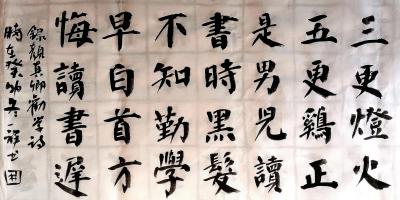 三更燈火
五更鷄正
是男兒讀
書時黑髮
不知勤學
早白首方
悔讀書遲
錄顏真卿勸学詩
時在癸卯冬